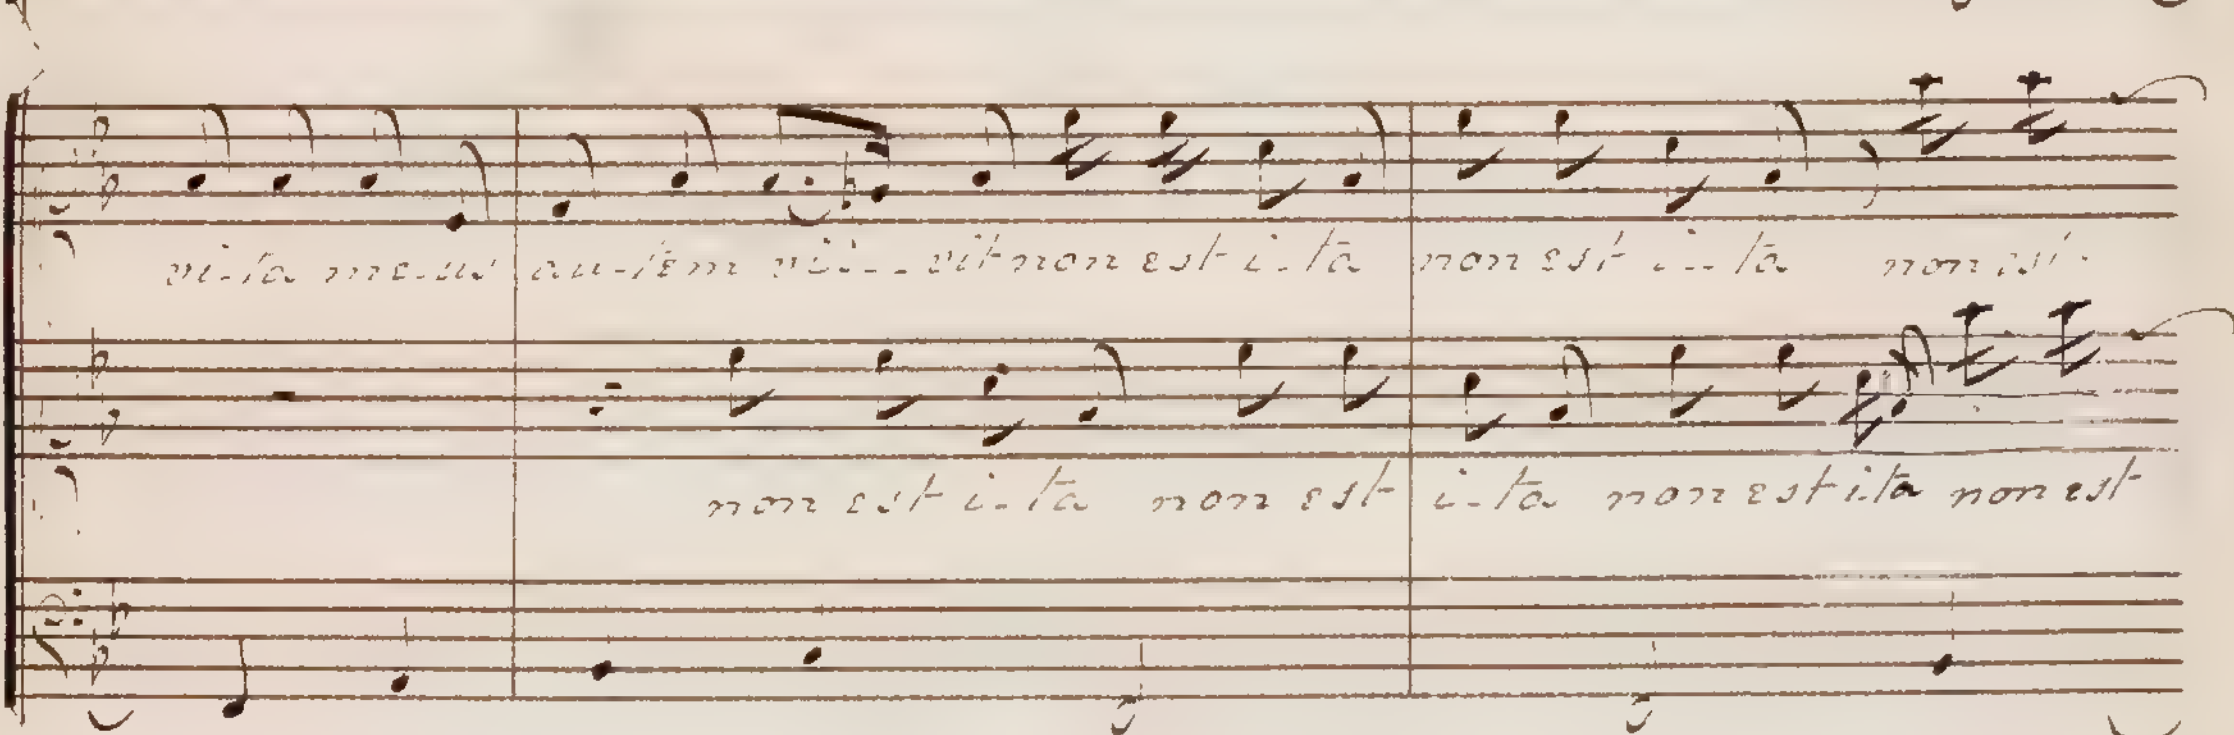 vi-ta me-us au-tem vi- - vit non est i-ta non est i-ta non est
non est i-ta non est i-ta non est ita non est